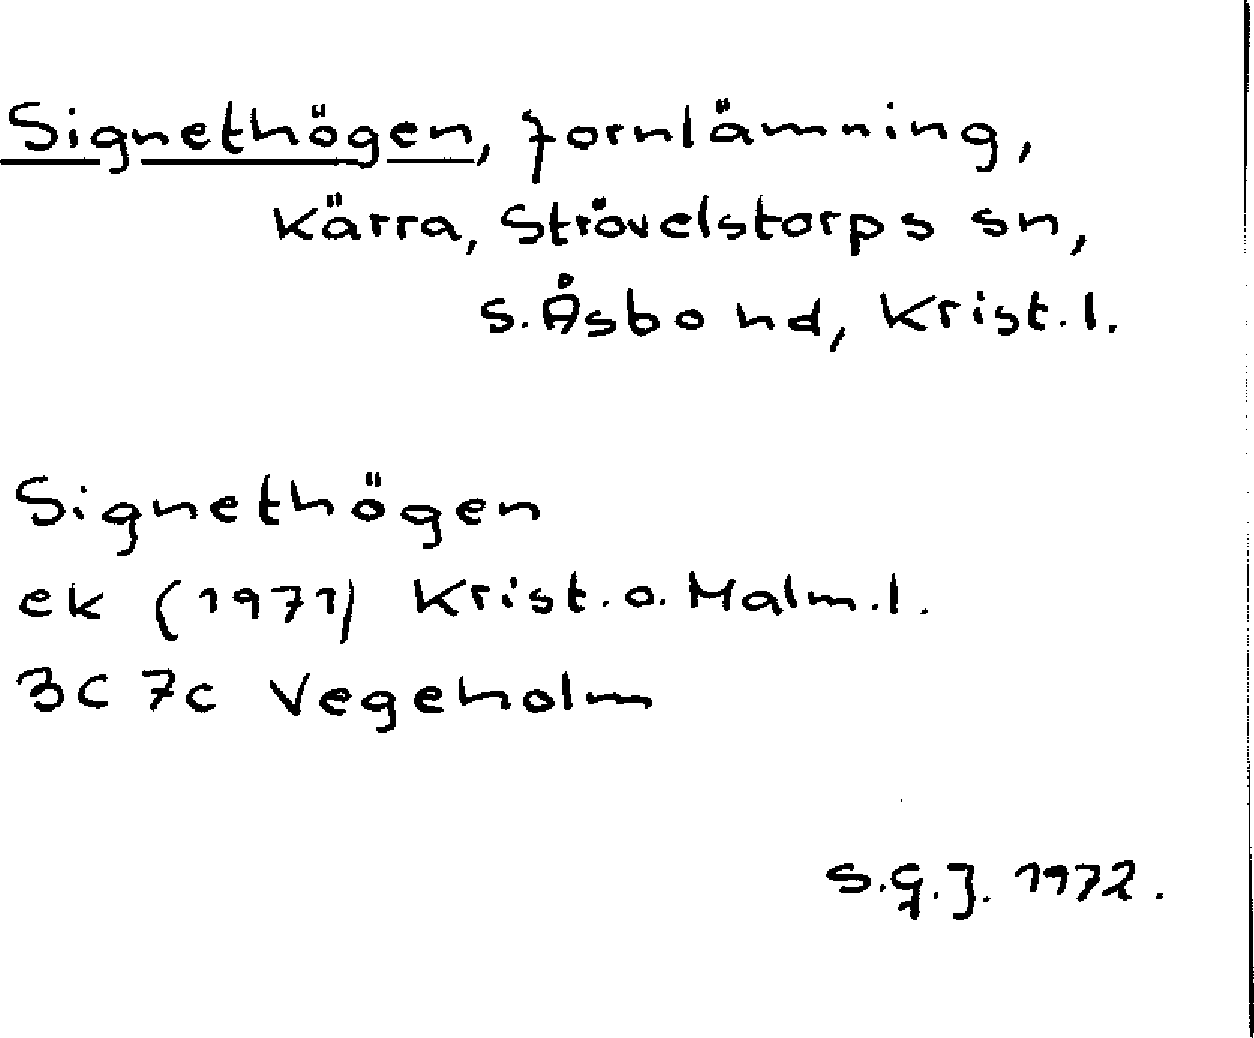 Signethögen, fornlämning,
Kärra, Strövelstorps sn,
S. Åsbo hd, Krist. l.
Signethögen
ek (1971) Krist. o. Malm. l.
3C 7c Vegeholm
S.G.J. 1972.